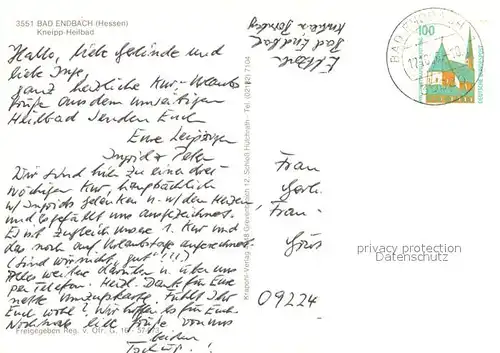 3551 BAD ENDBACH (Hessen)
Kneipp-Heilbad
Hallo, liebe Gerlinde und
liebe Inge,
ganz herzliche Kur-Urlaubs
grüße aus dem umseitigen
Heilbad senden Euch
Eure Leipziger
Ingrid + Peter
Wir sind hier zu einer drei-
wöchigen Kur, hauptsächlich
w/ Ingrids Gelenken u. w/ dem Herzen,
und es gefällt uns ausgezeichnet.
Es ist zugleich unsere 1. Kur und
das noch auf Urlaubstage angerechnet.
(sind wir nicht gut?!!!)
Alles weitere darüber u. über uns
per Telefon. Herzl. Dank für Eure
nette Umzugskarte. Fühlt Ihr
Euch wohl? Wir hoffen es für Euch.
Nochmals liebe Grüße von uns
beiden
Tschüß!
Freigegeben Reg. v. Ofr. G. 16 -
Krapohl-Verlag Grevenbroich 12, Schloß Hülchrath · Tel. (02182) 7104
Bad Endbach
BAD ENDBACH
100
DEUTSCHE BUNDESPOST
Frau
Gerl.
Frau
09224
privacy protection
Datenschutz